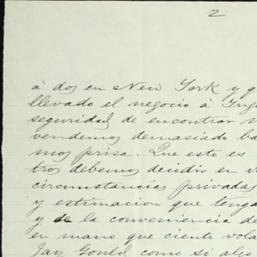 2
á dos en New York y q
llevado el negocio á Ing
seguridad de encontrar
vendemos demasiado ba
mos prisa. Que esto es
tros debemos decidir en v
circunstancias privadas
y estimacion que tenga
y de la conveniencia de
en mano que ciento vola
Jay Gould como si algo